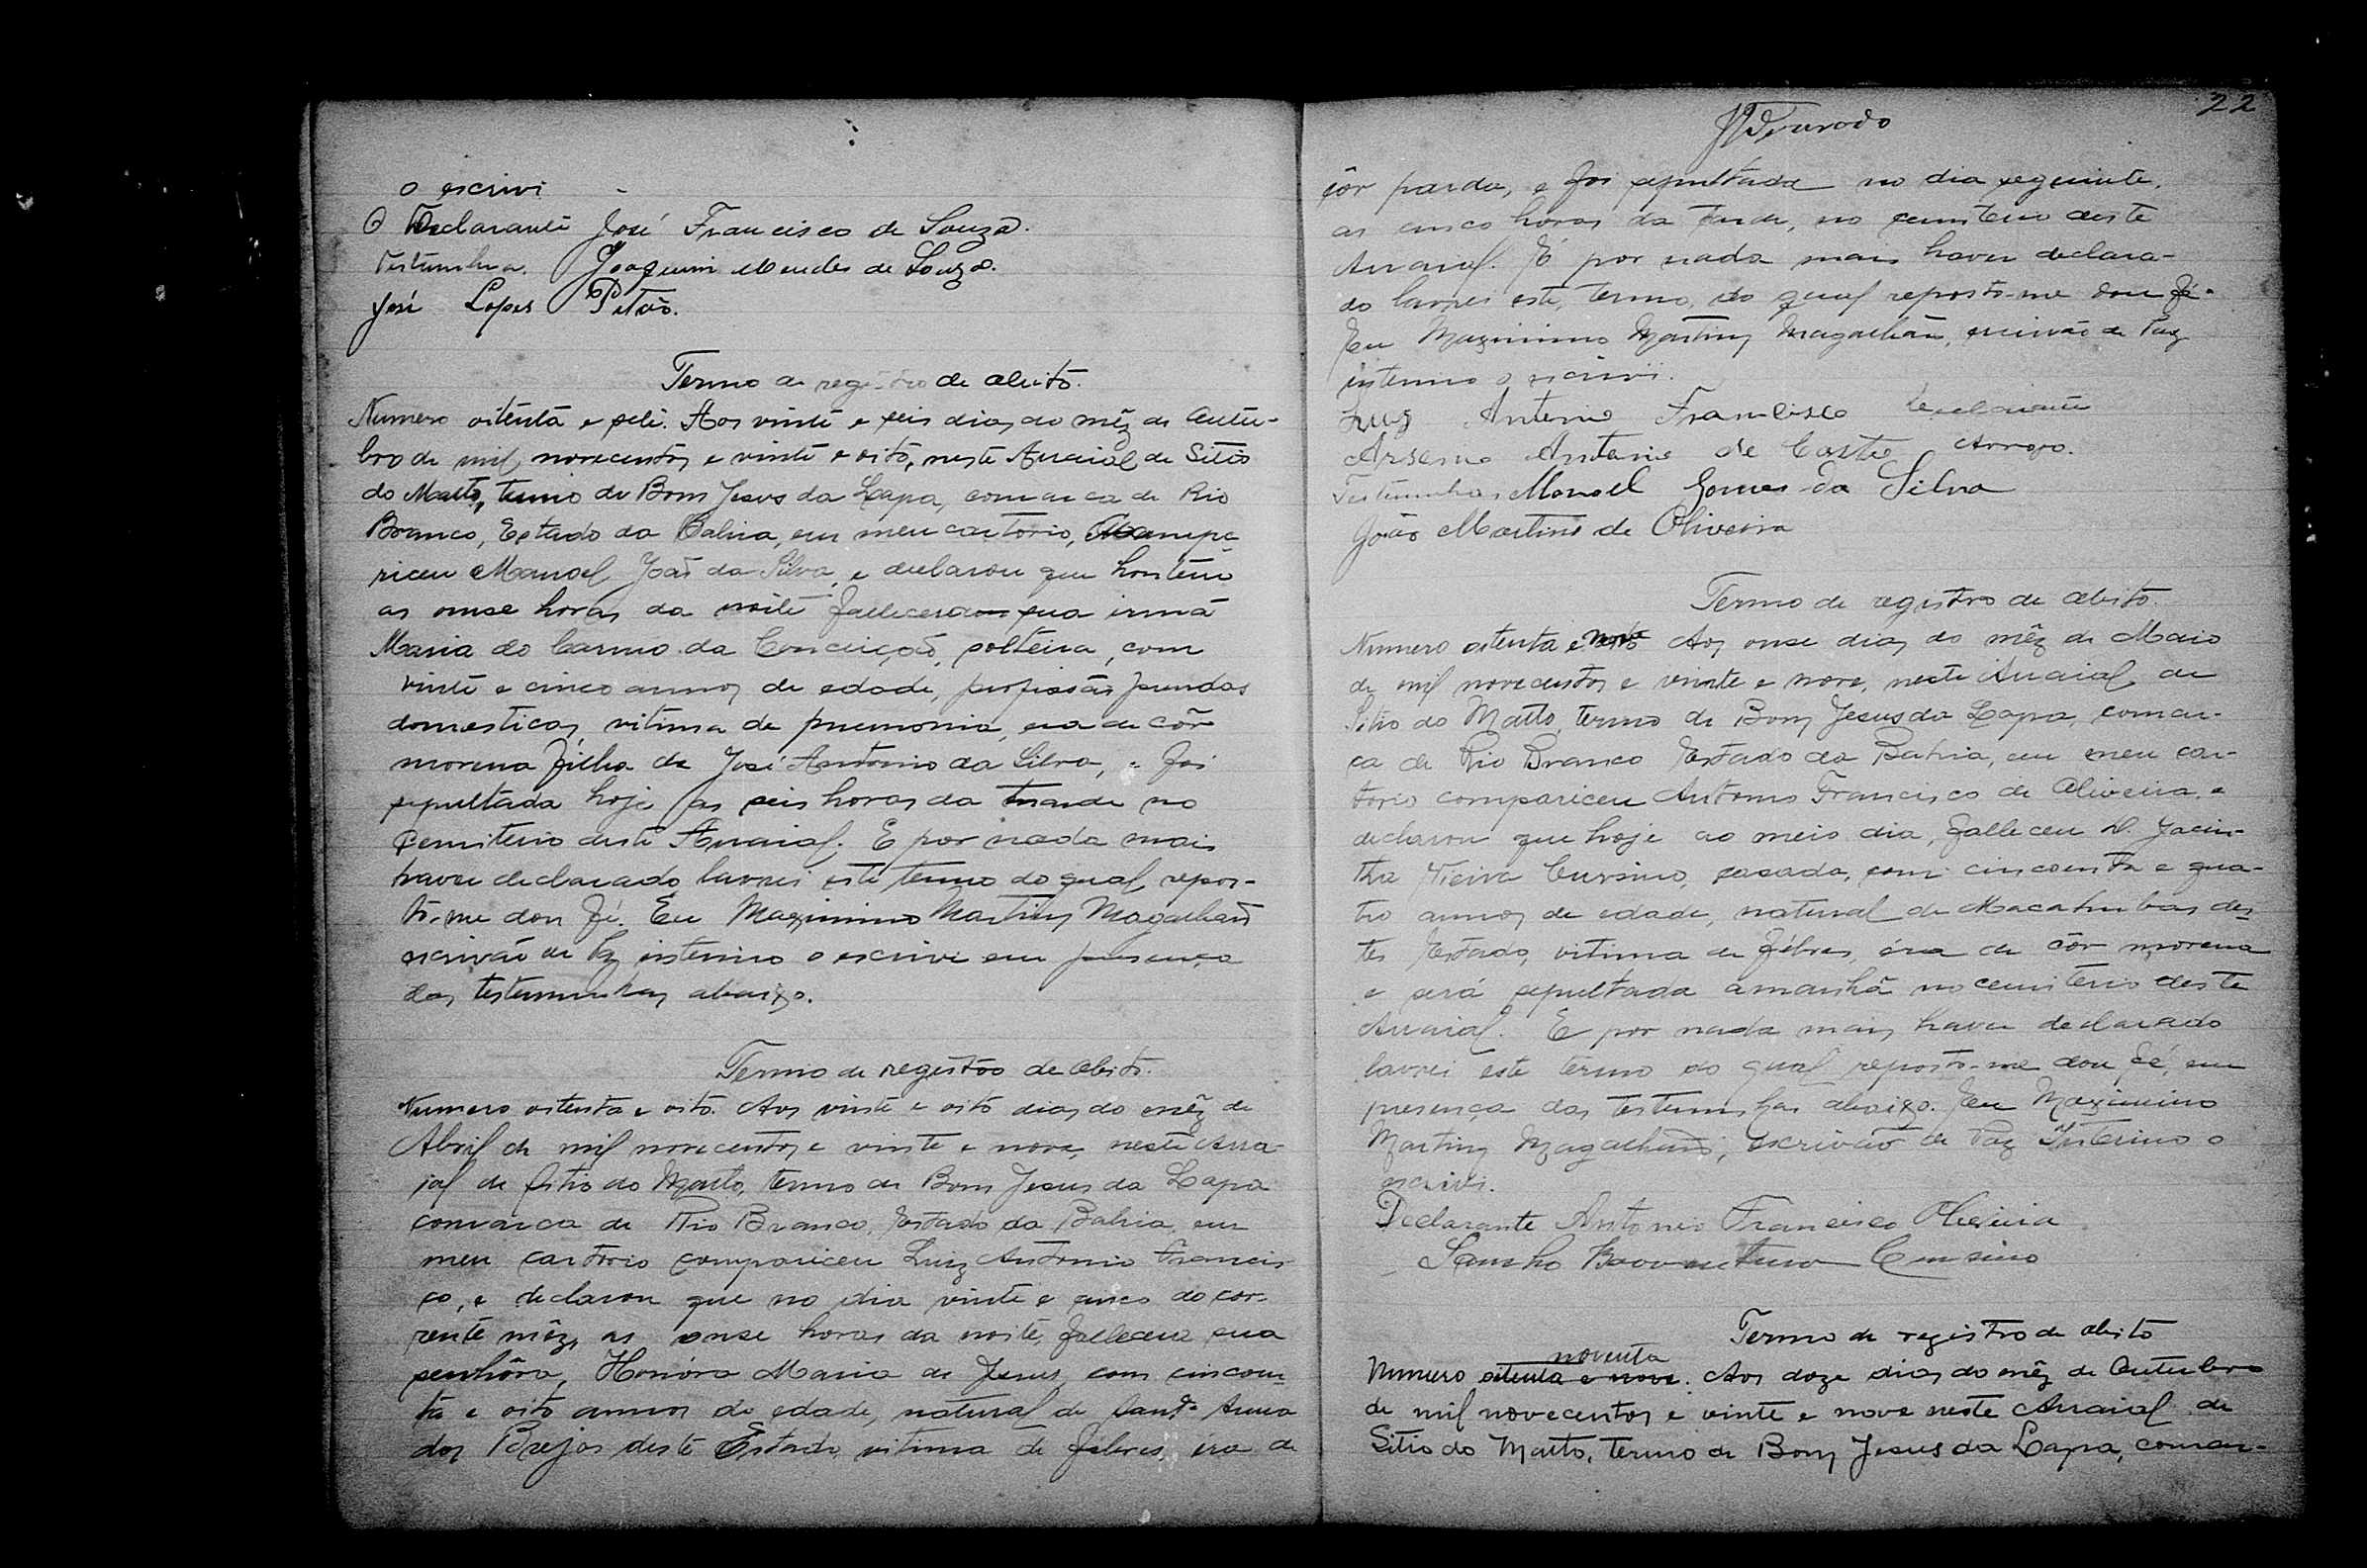 o escrivi
O Declarante José Francisco de Souza.
Testimunha. Joaquim Mendes de Souza.
José Lopes
Termo de registro de obito.
Numero oitenta e sete. Aos vinte e seis dias do mêz de Outu-
bro de mil novecentos e vinte e oito, neste Arraial de Sitio
do Matto, termo de Bom Jesus da Lapa, comarca de Rio
Branco, Estado da Bahia, em meu cartorio, compa
riceu Manoel João da Silva, e declarou que hontem
as onse horas da noite falleceu sua irmã
Maria do Carmo da Conceição, solteira, com
vinte e cinco annos de edade, profissão prendas
domesticas, vitima de pneumonia, era de côr
morena filha de José Antonio da Silva, e foi
sepultada hoje as seis horas da tarde no
cemiterio deste Arraial. E por nada mais
haver declarado lavrei este termo do qual repor-
to-me dou fé. Eu Maximino Martins Magalhães
escrivão de Paz interino o escrivi em presença
das testemunhas abaixo.
Termo de registro de obito.
Numero oitenta e oito. Aos vinte e oito dias do mêz de
Abril de mil novecentos e vinte e nove, neste Arra
ial de Sitio do Matto, termo de Bom Jesus da Lapa
comarca de Rio Branco, Estado da Bahia, em
meu cartorio compariceu Luiz Antonio Francis
co, e declarou que no dia vinte e cinco do cor-
rente mêz, as onse horas da noite, falleceu sua
senhôra, Honóra Maria de Jesus, com cincoen
ta e oito annos de edade, natural de Sant'a Anna
dos Brejos deste Estado, vitima de febres, era de
22
côr parda, e foi sepultada no dia seguinte,
as cinco horas da tarde, no cemiterio deste
Arraial. E por nada mais haver declara-
do lavrei este, termo, do qual reporto-me dou fé.
Eu Maximino Martins Magalhães, escrivão de Paz
interino o escrivi.
Luiz Antonio Francisco declarante
Arsenio Antonio de Castro Arrogo.
Testemunhas Manoel Gomes da Silva
João Martins de Oliveira
Termo de registro de obito.
Numero oitenta e nove Aos onse dias do mêz de Maio
de mil novecentos e vinte e nove, neste Arraial de
Sitio do Matto, termo de Bom Jesus da Lapa, comar-
ca de Rio Branco Estado da Bahia, em meu car-
torio compariceu Antonio Francisco de Oliveira, e
declarou que hoje ao meio dia, falleceu D. Jacin-
tha Vieira Cursino, casada, com cincoenta e qua-
tro annos de edade, natural de Macahubas des
te Estado, vitima de fébres, éra de côr morena
e será sepultada amanhã no cemiterio deste
Arraial. E por nada mais haver declarado
lavrei este termo do qual reporto-me dou fé, em
presença das testemunhas abaixo. Eu Maximino
Martins Magalhães, escrivão de Paz Interino o
escrivi.
Declarante Antonio Francisco Oliveira
Sancho Boaventura Cursino
Termo de registro de obito
noventa
Numero oitenta e nove. Aos doze dias do mêz de Outubro
de mil novecentos e vinte e nove neste Arraial de
Sitio do Matto, termo de Bom Jesus da Lapa, comar-